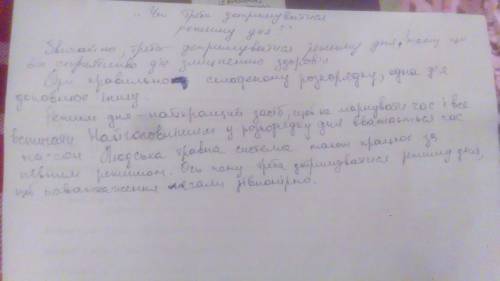 "Чи треба дотримуватися
режиму дня?"
Звичайно, треба дотримуватися режиму дня, тому що
він сприятиме для зміцнення здоров'я
При правильно складеному розпорядку, одна дія
доповнює іншу.
Режим дня - найкращий засіб, щоб не марнувати час і все
встигати Найголовнішим у розпорядку дня вважається час
на сон Людська травна система також працює за
певним режимом. Ось чому треба дотримуватися режиму дня,
щоб навантаження лягали рівномірно.